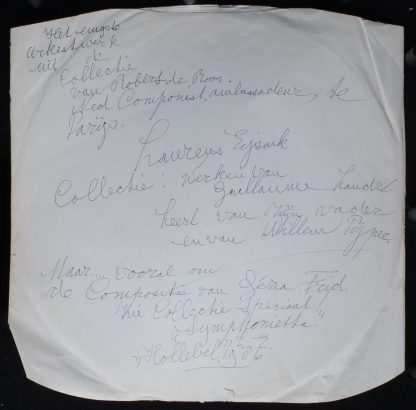 Het enigste
orkestwerk
uit de
Collectie
van Robert de Roos
Ned Componist, ambassadeur, te
Parijs.
Laurens
Collectie: Werken van
Guillaume Landré
heert van mijn vader
en van Willem Pijper
Maar... vooral om
de Compositie van Géza Frid.
die Collectie Speciaal
"Symphonietta"